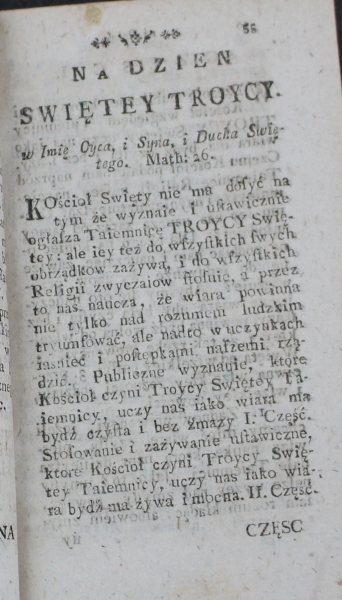 56
NA DZIEN
SWIĘTEY TROYCY.
w Imię Oyca, i Syna, i Ducha Swię-
tego. Math: 26.
KOścioł Swięty nie ma dosyć na
tym że wyznaie i ustawicznie
ogłasza Taiemnicę TROYCY Swię-
tey: ale iey też do wszystkich swych
obrządkow zażywa, i do wszystkich
Religii zwyczaiow stosuie, a przez
to nas naucza, że wiara powinna
nie tylko nad rozumem ludzkim
tryumfować, ale nadto w uczynkach
iaśnieć i postępkami naszemi rzą-
dzić. Publiczne wyznanie, ktore
Kościoł czyni Troycy Swiętey Ta-
iemnicy, uczy nas iako wiara ma
bydź czysta i bez zmazy I. Część.
Stosowanie i zażywanie ustawiczne,
ktore Kościoł czyni Troycy Swię-
tey Taiemnicy, uczy nas iako wia-
ra bydź ma żywa i mocna. II. Część.
CZĘSC
NA